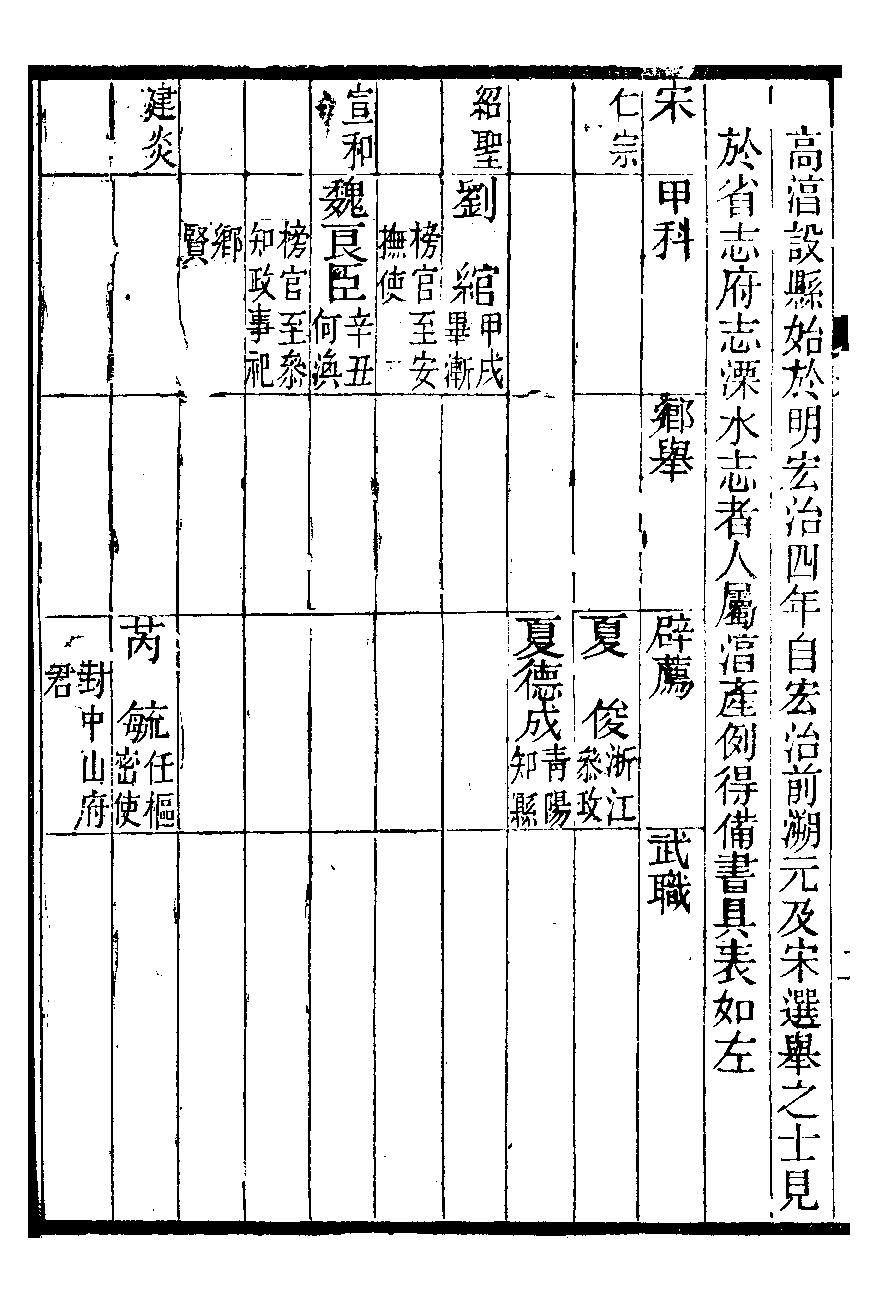 高淳設縣始於明宏治四年自宏治前溯元及宋選舉之士見
於省志府志溧水志者人屬淳產例得備書具表如左
宋 甲科 鄉舉 辟薦 武職
仁宗 夏俊 浙江
叅政
夏德成 青陽
知縣
紹聖 劉綰 甲戌
畢漸
榜官至安
撫使
宣和 魏良臣 辛丑
何渙
榜官至叅
知政事祀
鄉
賢
建炎 芮毓 任樞
密使
封中山府
君